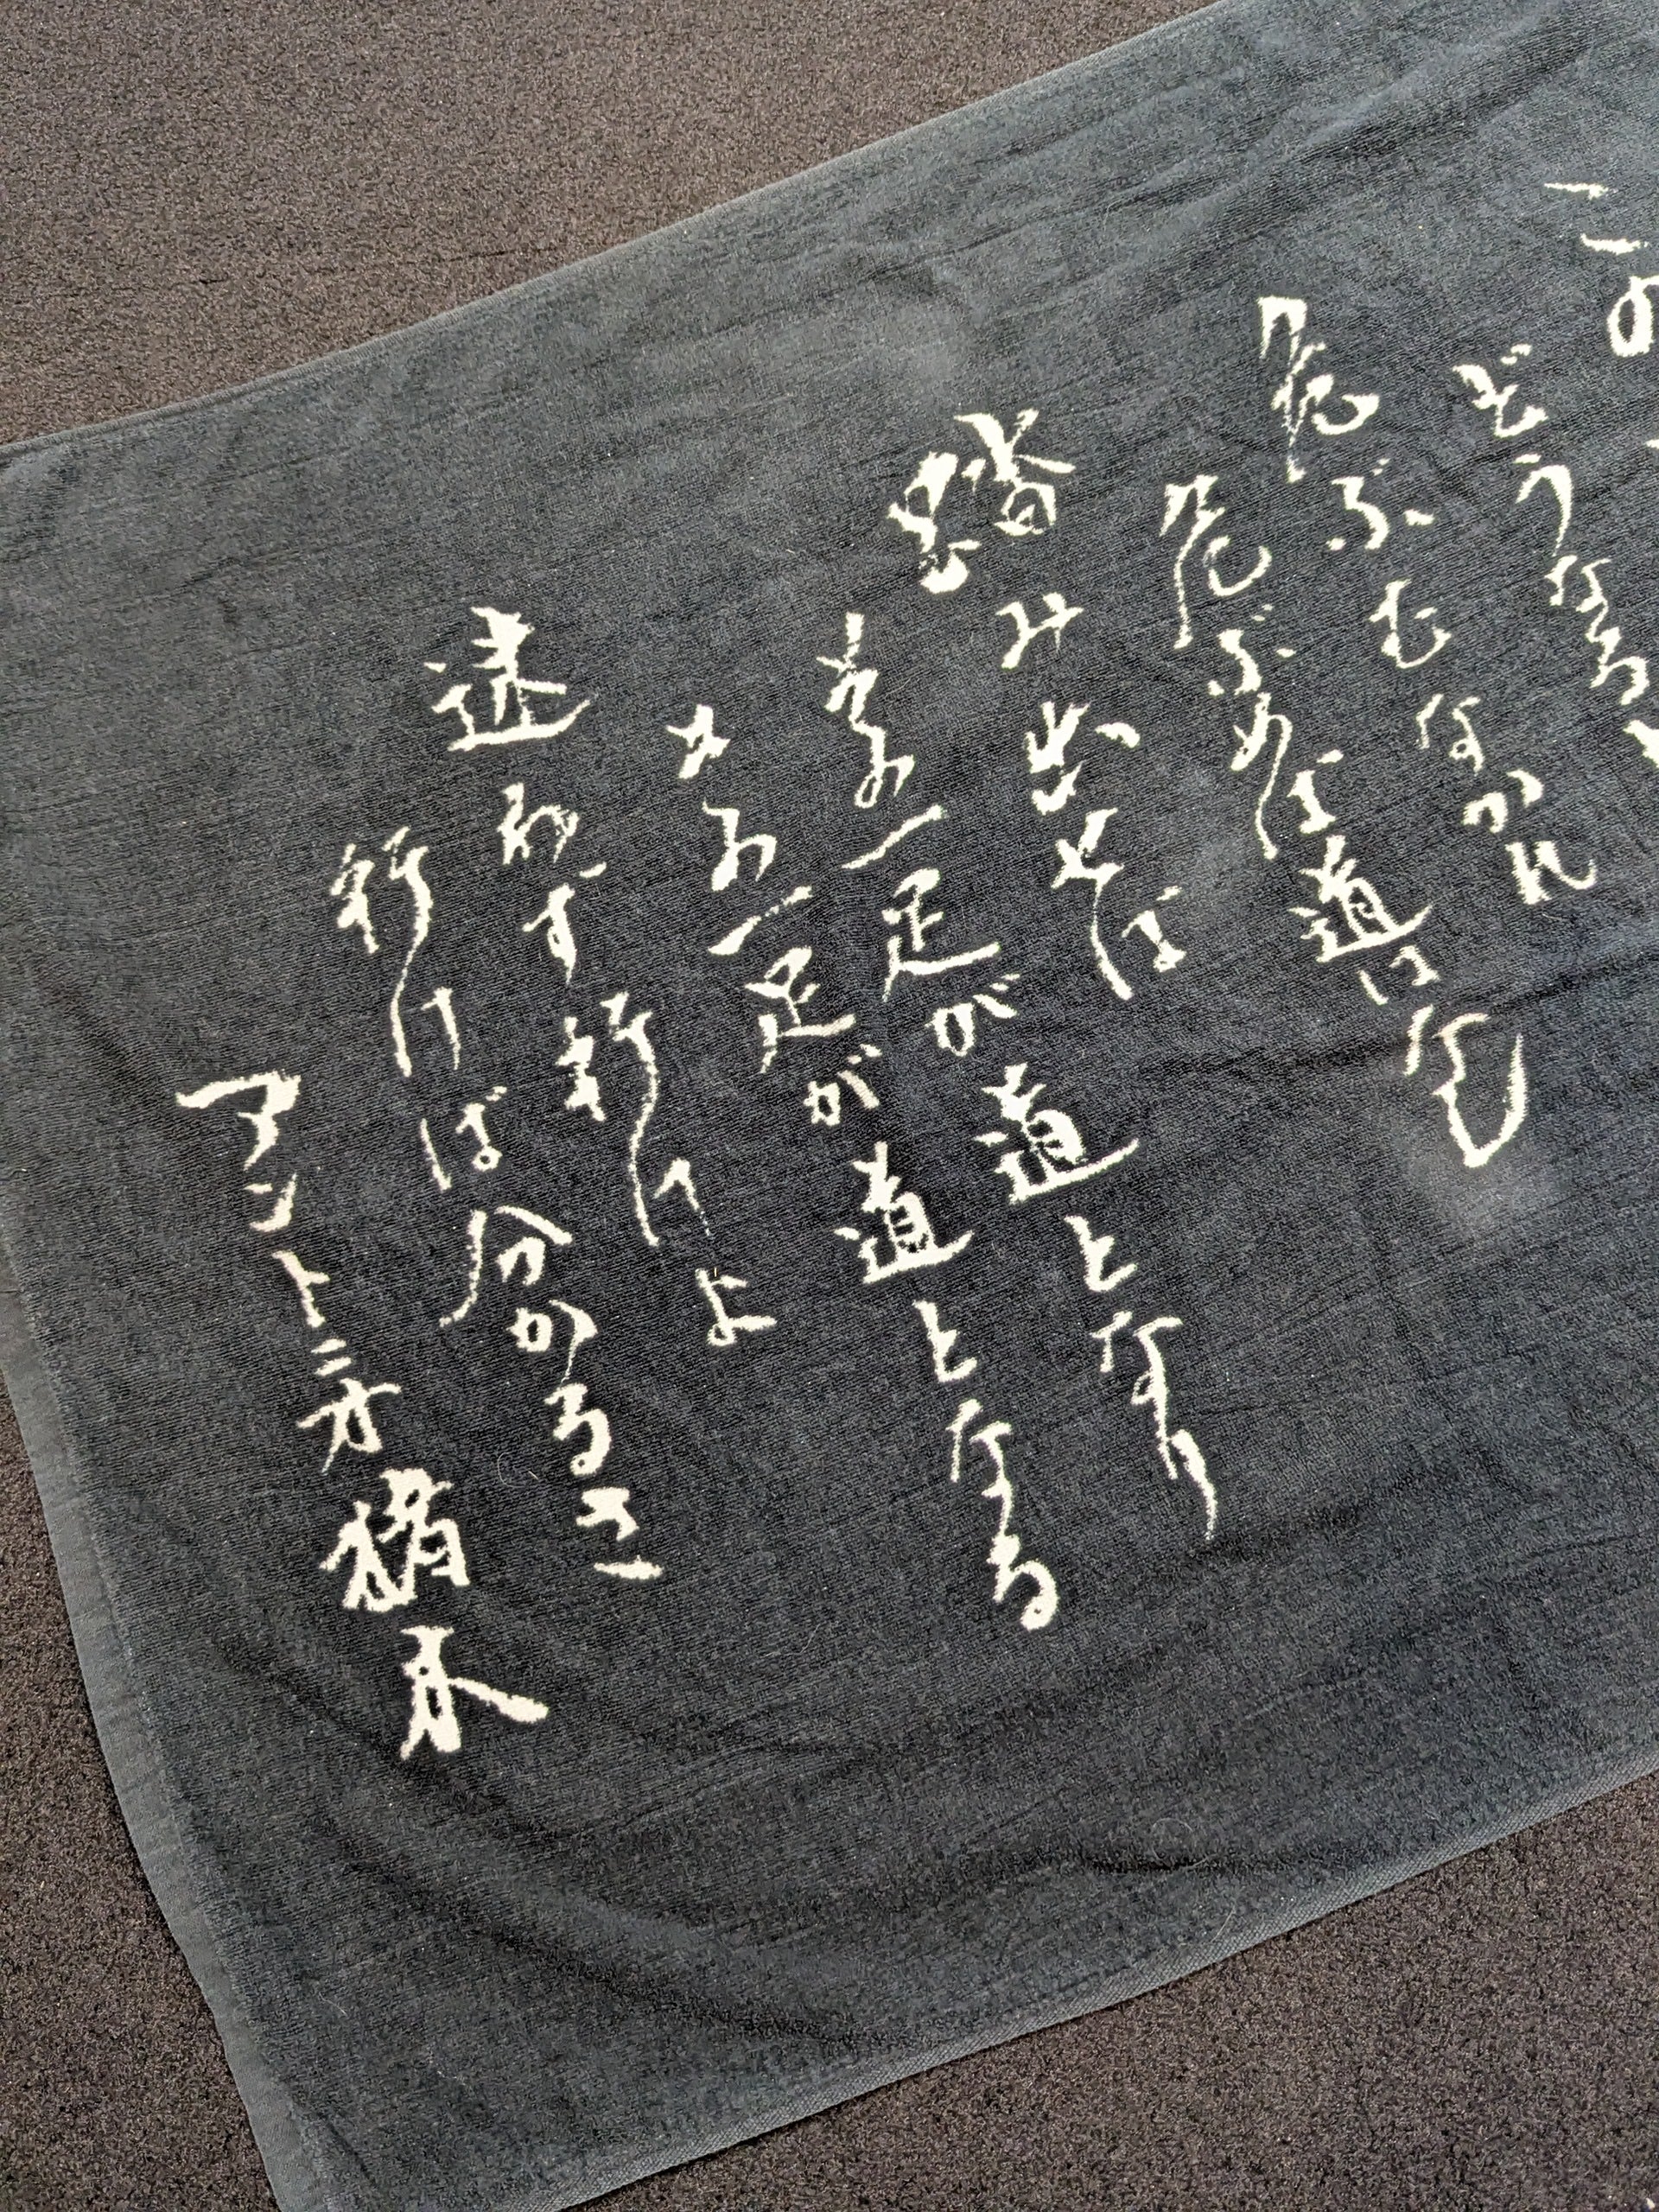 この
どうなる
危ぶむなかれ
危ぶめば道はなし
踏み出せば
その一足が道となり
その一足が道となる
迷わず行けよ
行けば分かるさ
アントニオ猪木